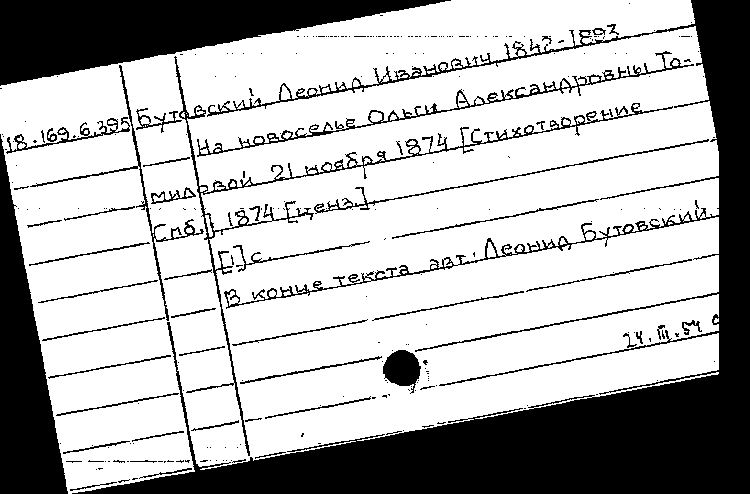 18.169.6.395 Бутовский, Леонид Иванович, 1842-1893
На новоселье Ольги Александровны То-
миловой 21 ноября 1874 [Стихотворение
Спб.], 1874 [ценз.].
[1] с.
В конце текста авт.: Леонид Бутовский.
24.III.54